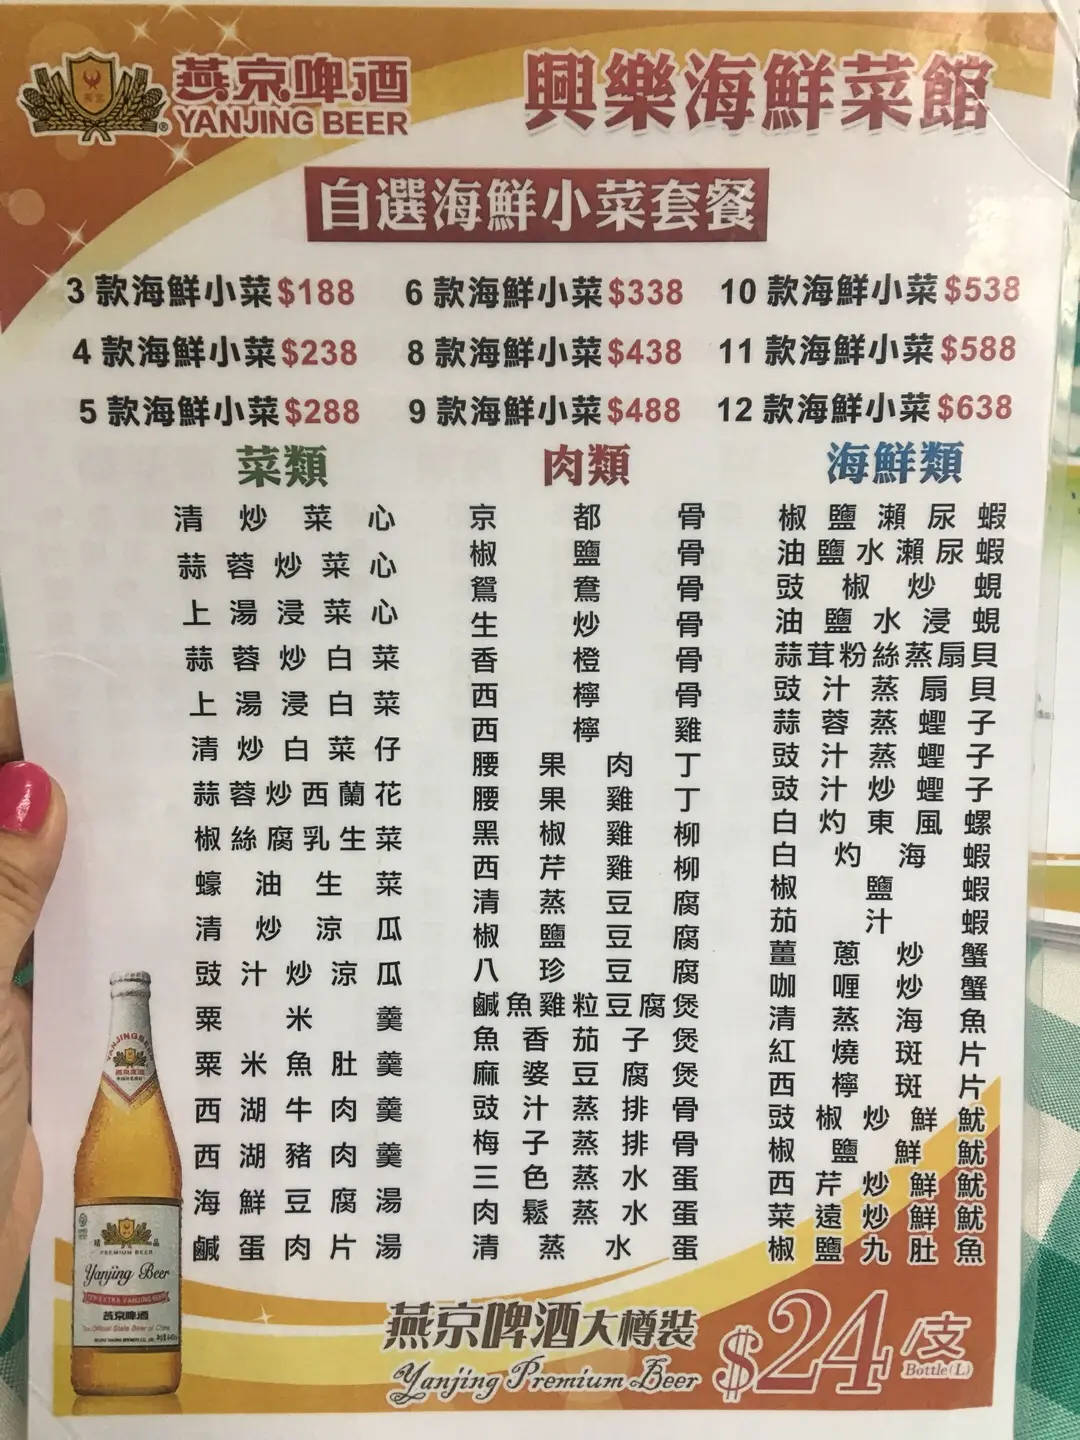 燕京啤酒
YANJING BEER
興樂海鮮菜館
自選海鮮小菜套餐
3 款海鮮小菜 $188
6 款海鮮小菜 $338
10 款海鮮小菜 $538
4 款海鮮小菜 $238
8 款海鮮小菜 $438
11 款海鮮小菜 $588
5 款海鮮小菜 $288
9 款海鮮小菜 $488
12 款海鮮小菜 $638
菜類
清炒菜心
蒜蓉炒菜心
上湯浸菜心
蒜蓉炒白菜
上湯浸白菜
清炒白菜仔
蒜蓉炒西蘭花
椒絲腐乳生菜
蠔油生菜
清炒涼瓜
豉汁炒涼瓜
粟米羹
粟米魚肚羹
西湖牛肉羹
西湖豬肉羹
海鮮豆腐湯
鹹蛋肉片湯
肉類
京都骨
椒鹽骨
鴛鴦骨
生炒骨
香橙骨
西檸骨
西檸雞
腰果肉丁
腰果雞丁
黑椒雞柳
西芹雞柳
清蒸豆腐
椒鹽豆腐
八珍豆腐
鹹魚雞粒豆腐煲
魚香茄子煲
麻婆豆腐煲
豉汁蒸排骨
梅子蒸排骨
三色蒸水蛋
肉鬆蒸水蛋
清蒸水蛋
海鮮類
椒鹽瀨尿蝦
油鹽水瀨尿蝦
豉椒炒蜆
油鹽水浸蜆
蒜茸粉絲蒸扇貝
豉汁蒸扇貝
蒜蓉蒸蟶子
豉汁蒸蟶子
豉汁炒蟶子
白灼東風螺
白灼海蝦
椒鹽蝦
茄汁蝦
薑蔥炒蟹
咖喱炒蟹
清蒸海魚
紅燒斑片
西檸斑片
豉椒炒鮮魷
椒鹽鮮魷
西芹炒鮮魷
菜遠炒鮮魷
椒鹽九肚魚
YANJING BEER
精品
PREMIUM BEER
Yanjing Beer
燕京啤酒
燕京啤酒大樽裝
Yanjing Premium Beer
$24/支
Bottle(L)